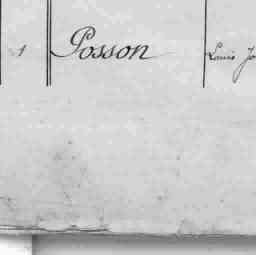 1 Posson Louis Jo